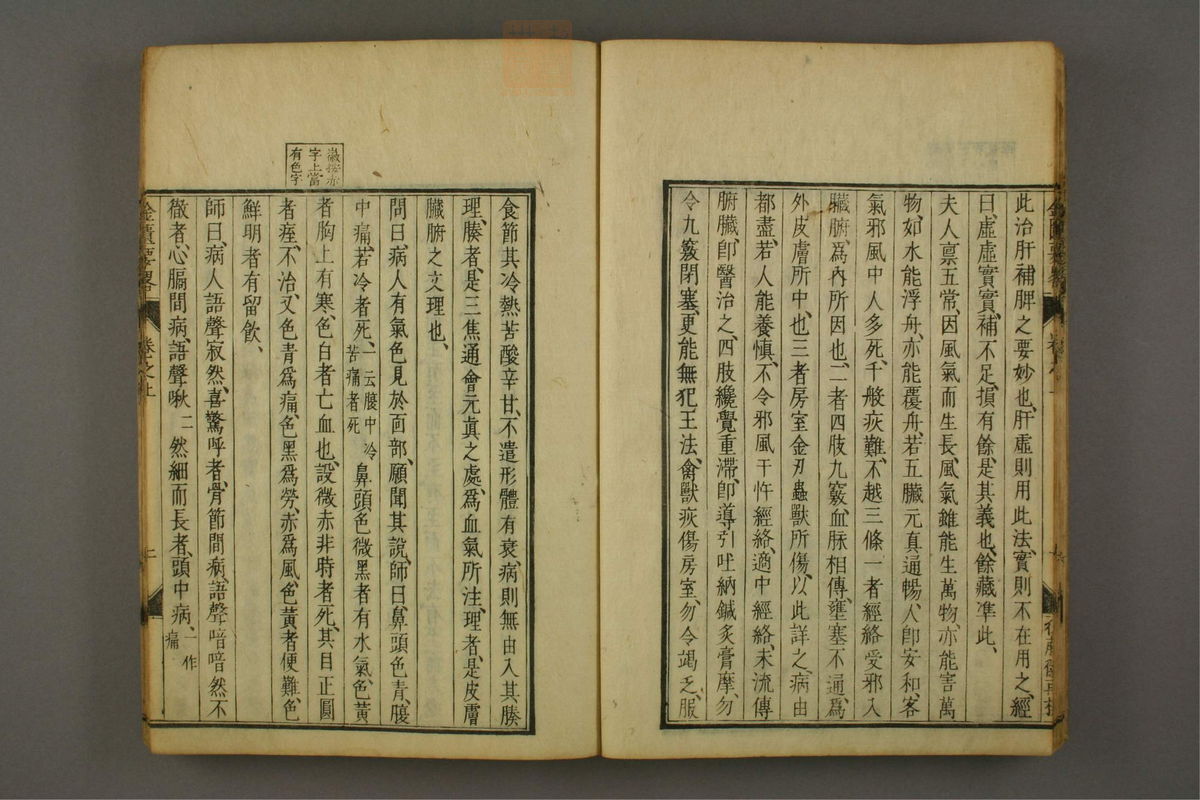 此治肝補脾之要妙也、肝虛則用此法、實則不在用之、經
曰、虛虛實實、補不足、損有餘、是其義也、餘藏準此、
夫人稟五常、因風氣而生長、風氣雖能生萬物、亦能害萬
物、如水能浮舟、亦能覆舟、若五臟元真通暢、人卽安和、客
氣邪風中人多死、千般疢難、不越三條、一者經絡受邪入
臟腑、爲內所因也、二者四肢九竅、血脉相傳、壅塞不通、爲
外皮膚所中也、三者房室金刃蟲獸所傷、以此詳之、病由
都盡、若人能養慎、不令邪風干忤經絡、適中經絡、未流傳
腑臟、卽醫治之、四肢纔覺重滯、卽導引吐納鍼灸膏摩、勿
令九竅閉塞、更能無犯王法、禽獸災傷、房室勿令竭乏、服
食節其冷熱苦酸辛甘、不遣形體有衰、病則無由入其腠
理、腠者、是三焦通會元眞之處、爲血氣所注、理者、是皮膚
臟腑之文理也、
問曰、病人有氣色見於面部、願聞其說、師曰、鼻頭色青、腹
中痛、若冷者死、一云腹中冷苦痛者死 鼻頭色微黑者有水氣、色黃
者胸上有寒、色白者亡血也、設微赤非時者死、其目正圓
者痓、不治、又色青爲痛、色黑爲勞、赤爲風、色黃者便難、色
鮮明者有留飲、
師曰、病人語聲寂然、喜驚呼者、骨節間病、語聲喑喑然不
徹者、心膈間病、語聲啾二然細而長者、頭中病、一作痛
徽按赤
字上當
有色字
金匱要畧 卷之上